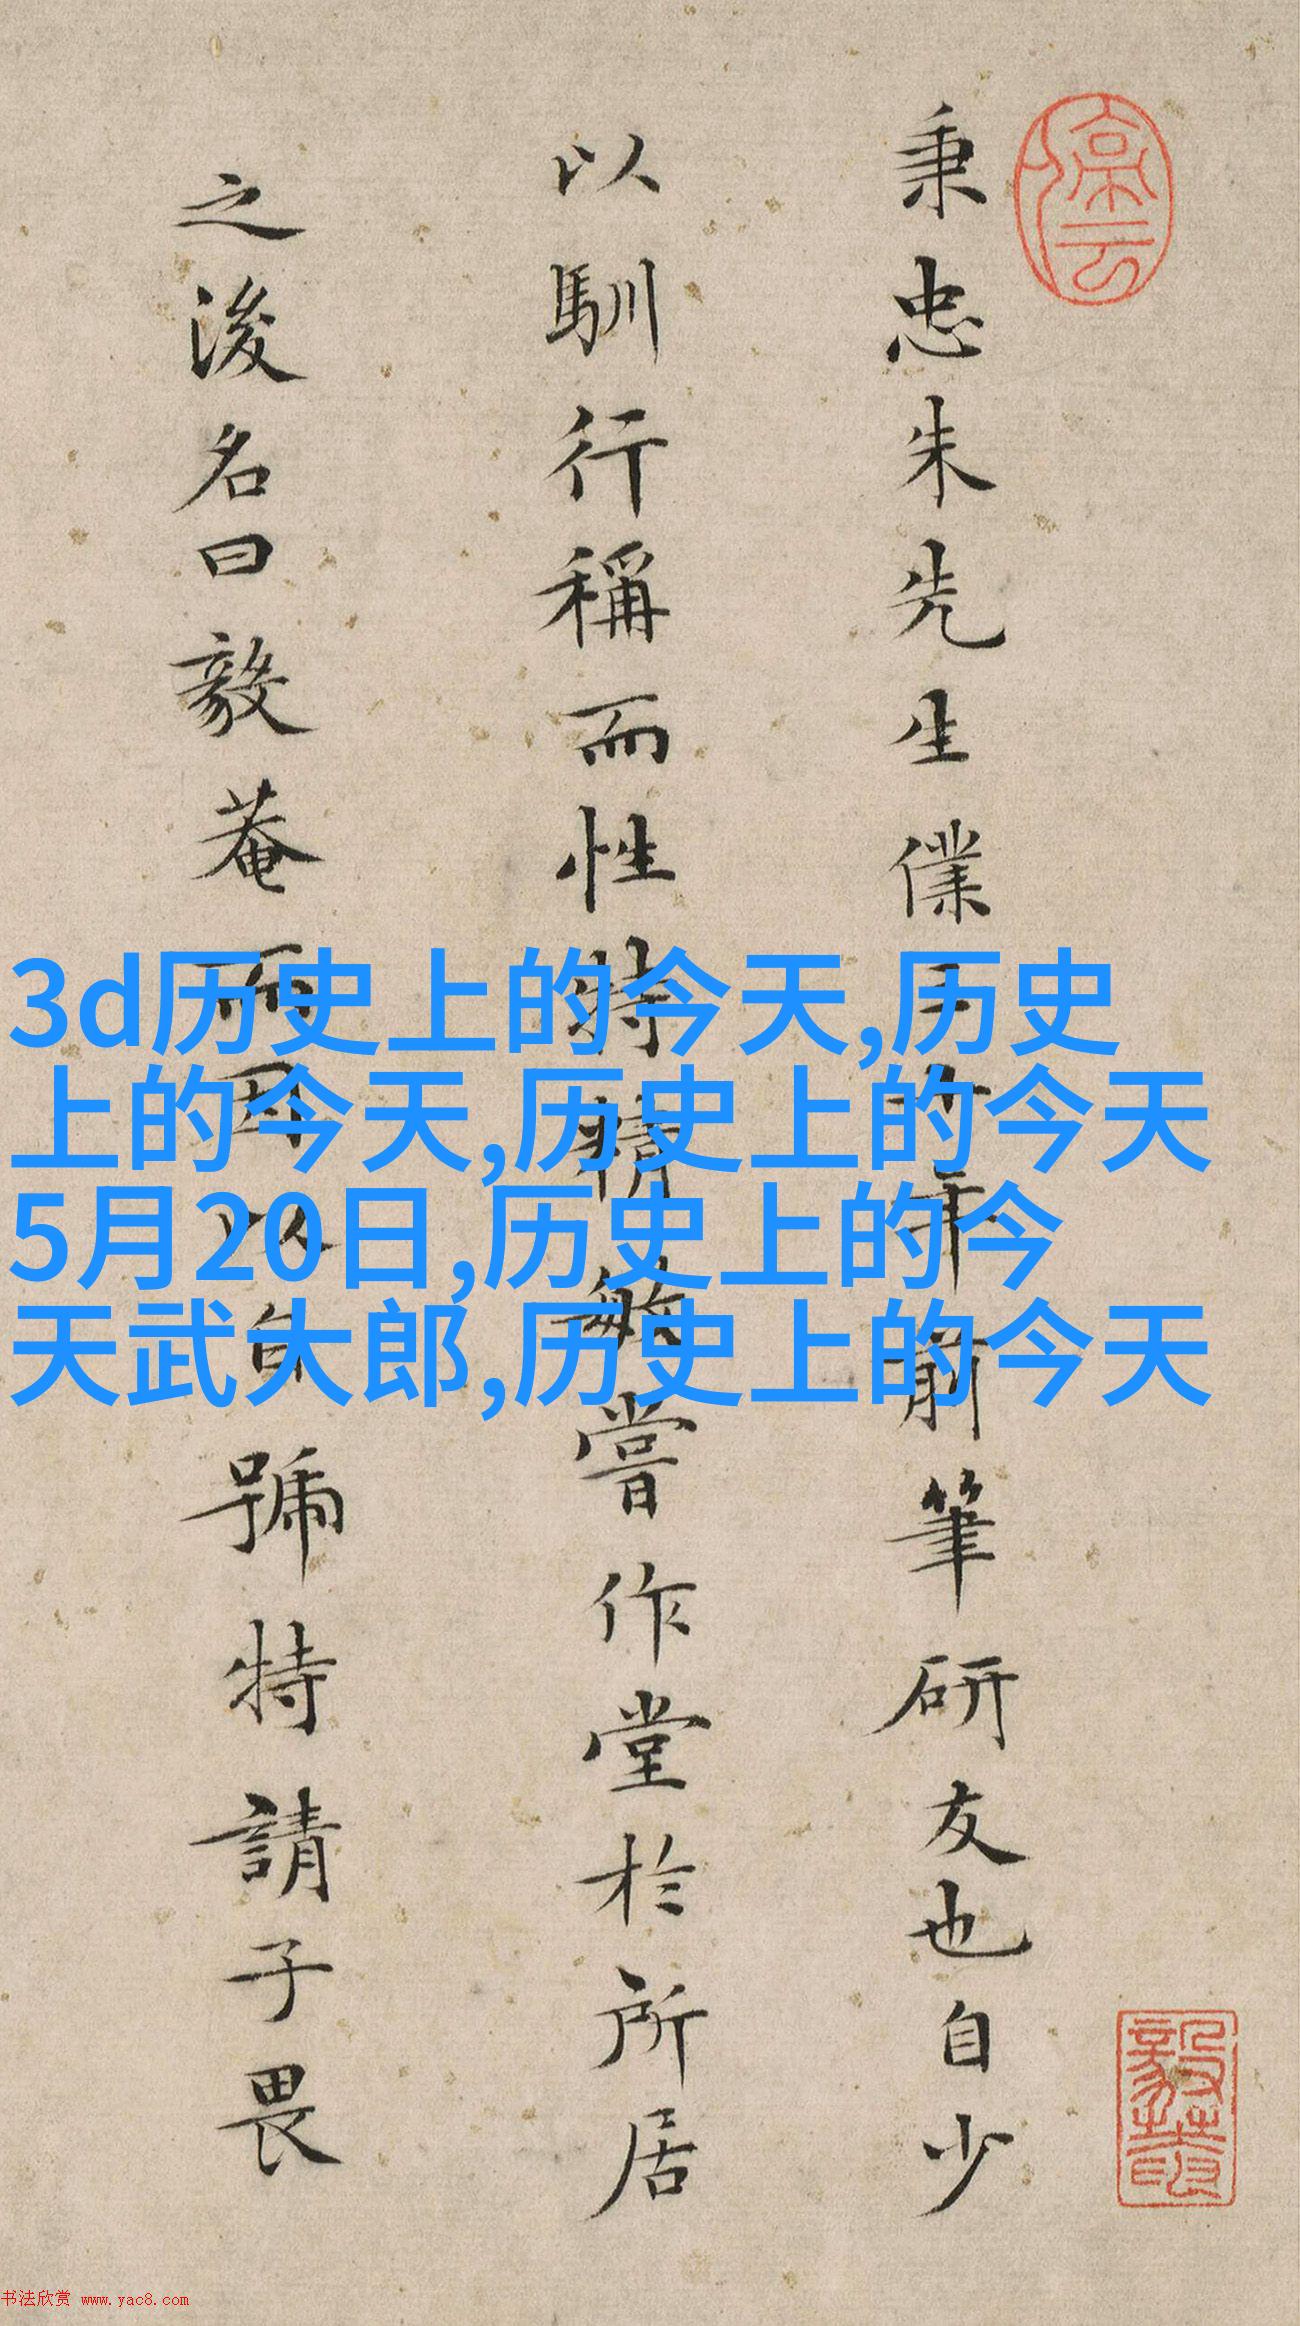 秉忠朱先生僕三十年前筆研友也自少
以馴行稱而性特精敏嘗作堂於所居
之後名曰毅菴而因以自號特請子畏
3d历史上的今天,历史
上的今天,历史上的今天
5月20日,历史上的今
天武大郎,历史上的今天
书法欣赏 www.yac8.com